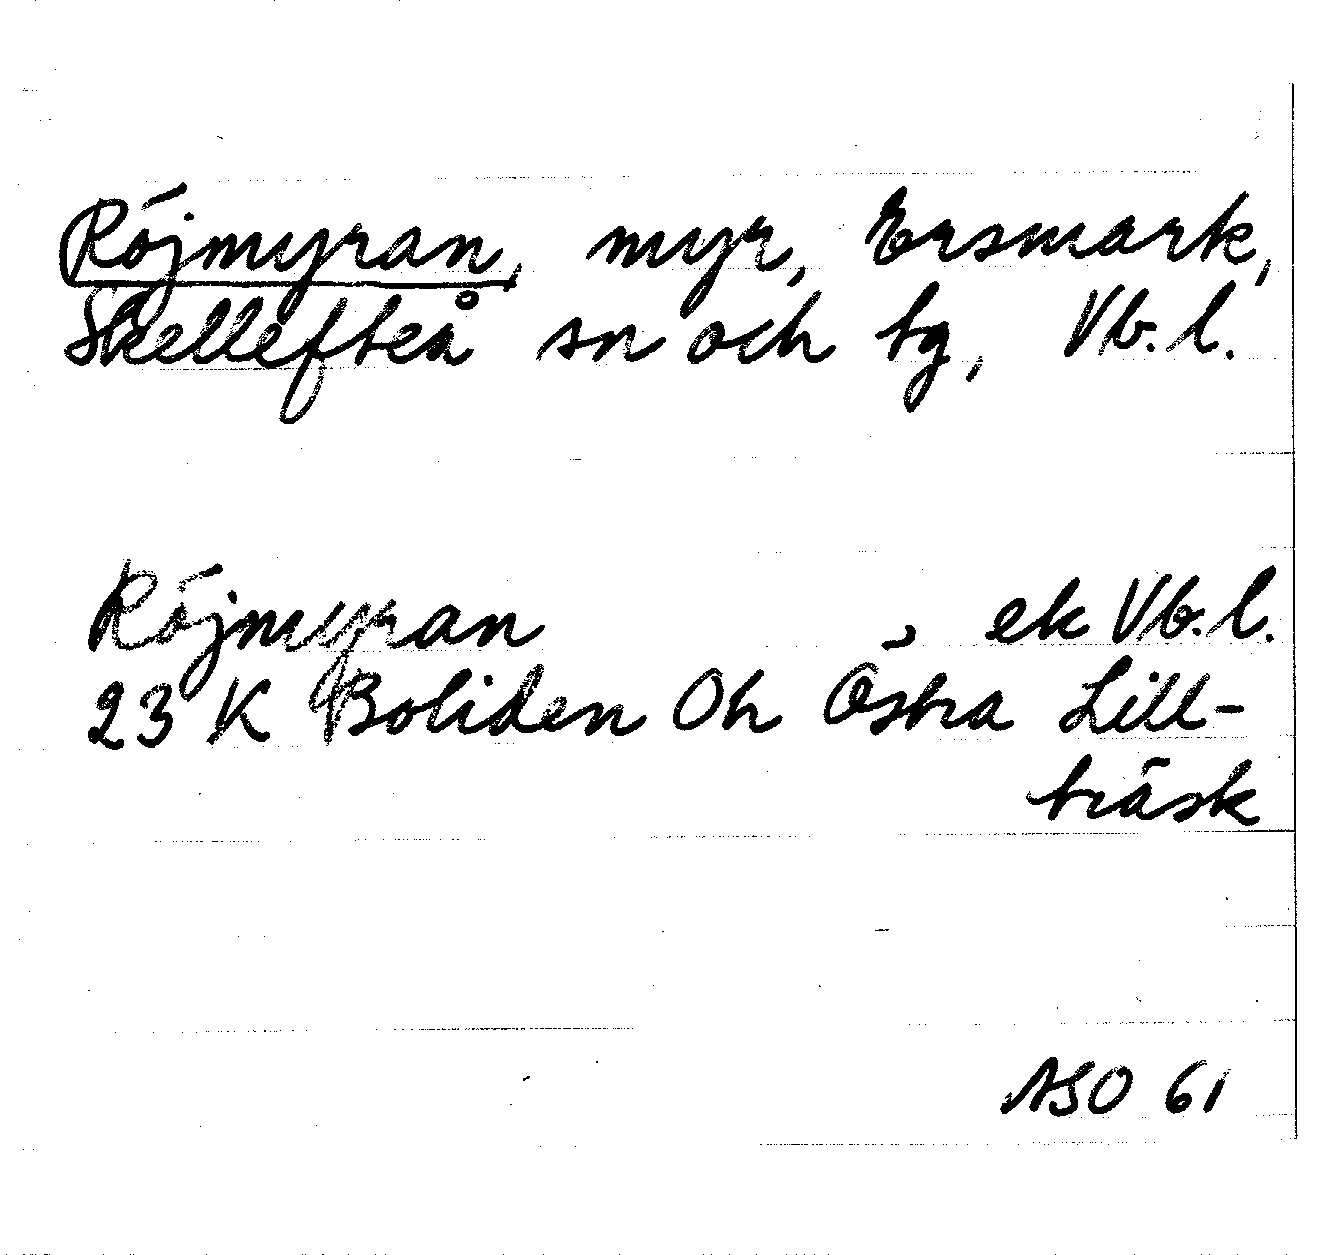 Röjmyran, myr, Ersmark,
Skellefteå sn och tg, Vb. l.
Röjmyran , ek Vb. l.
23 K Boliden Oh Östra Lill-
träsk
ASO 61